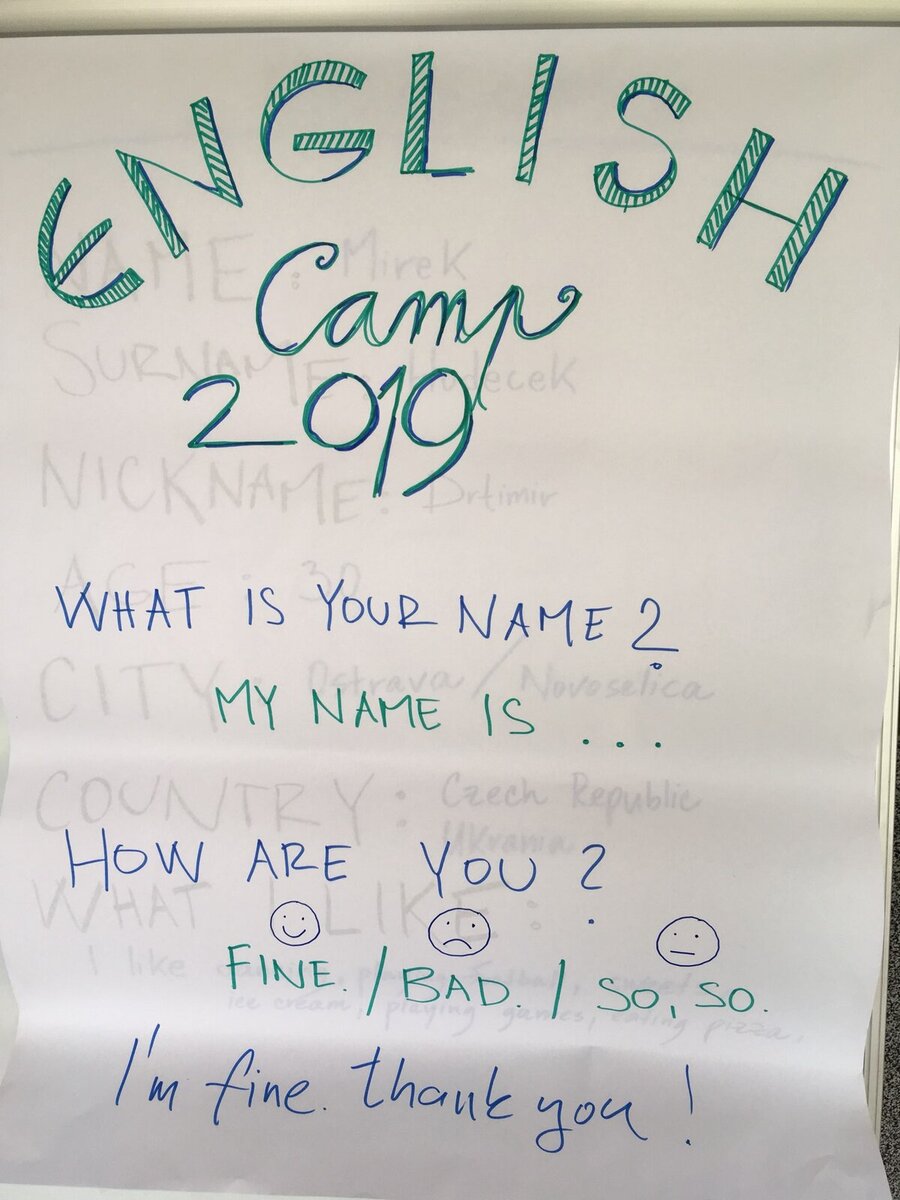 ENGLISH
Camp
2019
NAME: Mirek
SURNAME: Hudecek
NICKNAME: Drtimir
AGE: 30
WHAT IS YOUR NAME?
CITY: Ostrava / Novoselica
MY NAME IS ...
COUNTRY: Czech Republic
Ukrania
HOW ARE YOU?
WHAT I LIKE:
FINE. / BAD. / SO, SO.
I like
ice cream, playing games, eating pizza.
I'm fine. thank you!